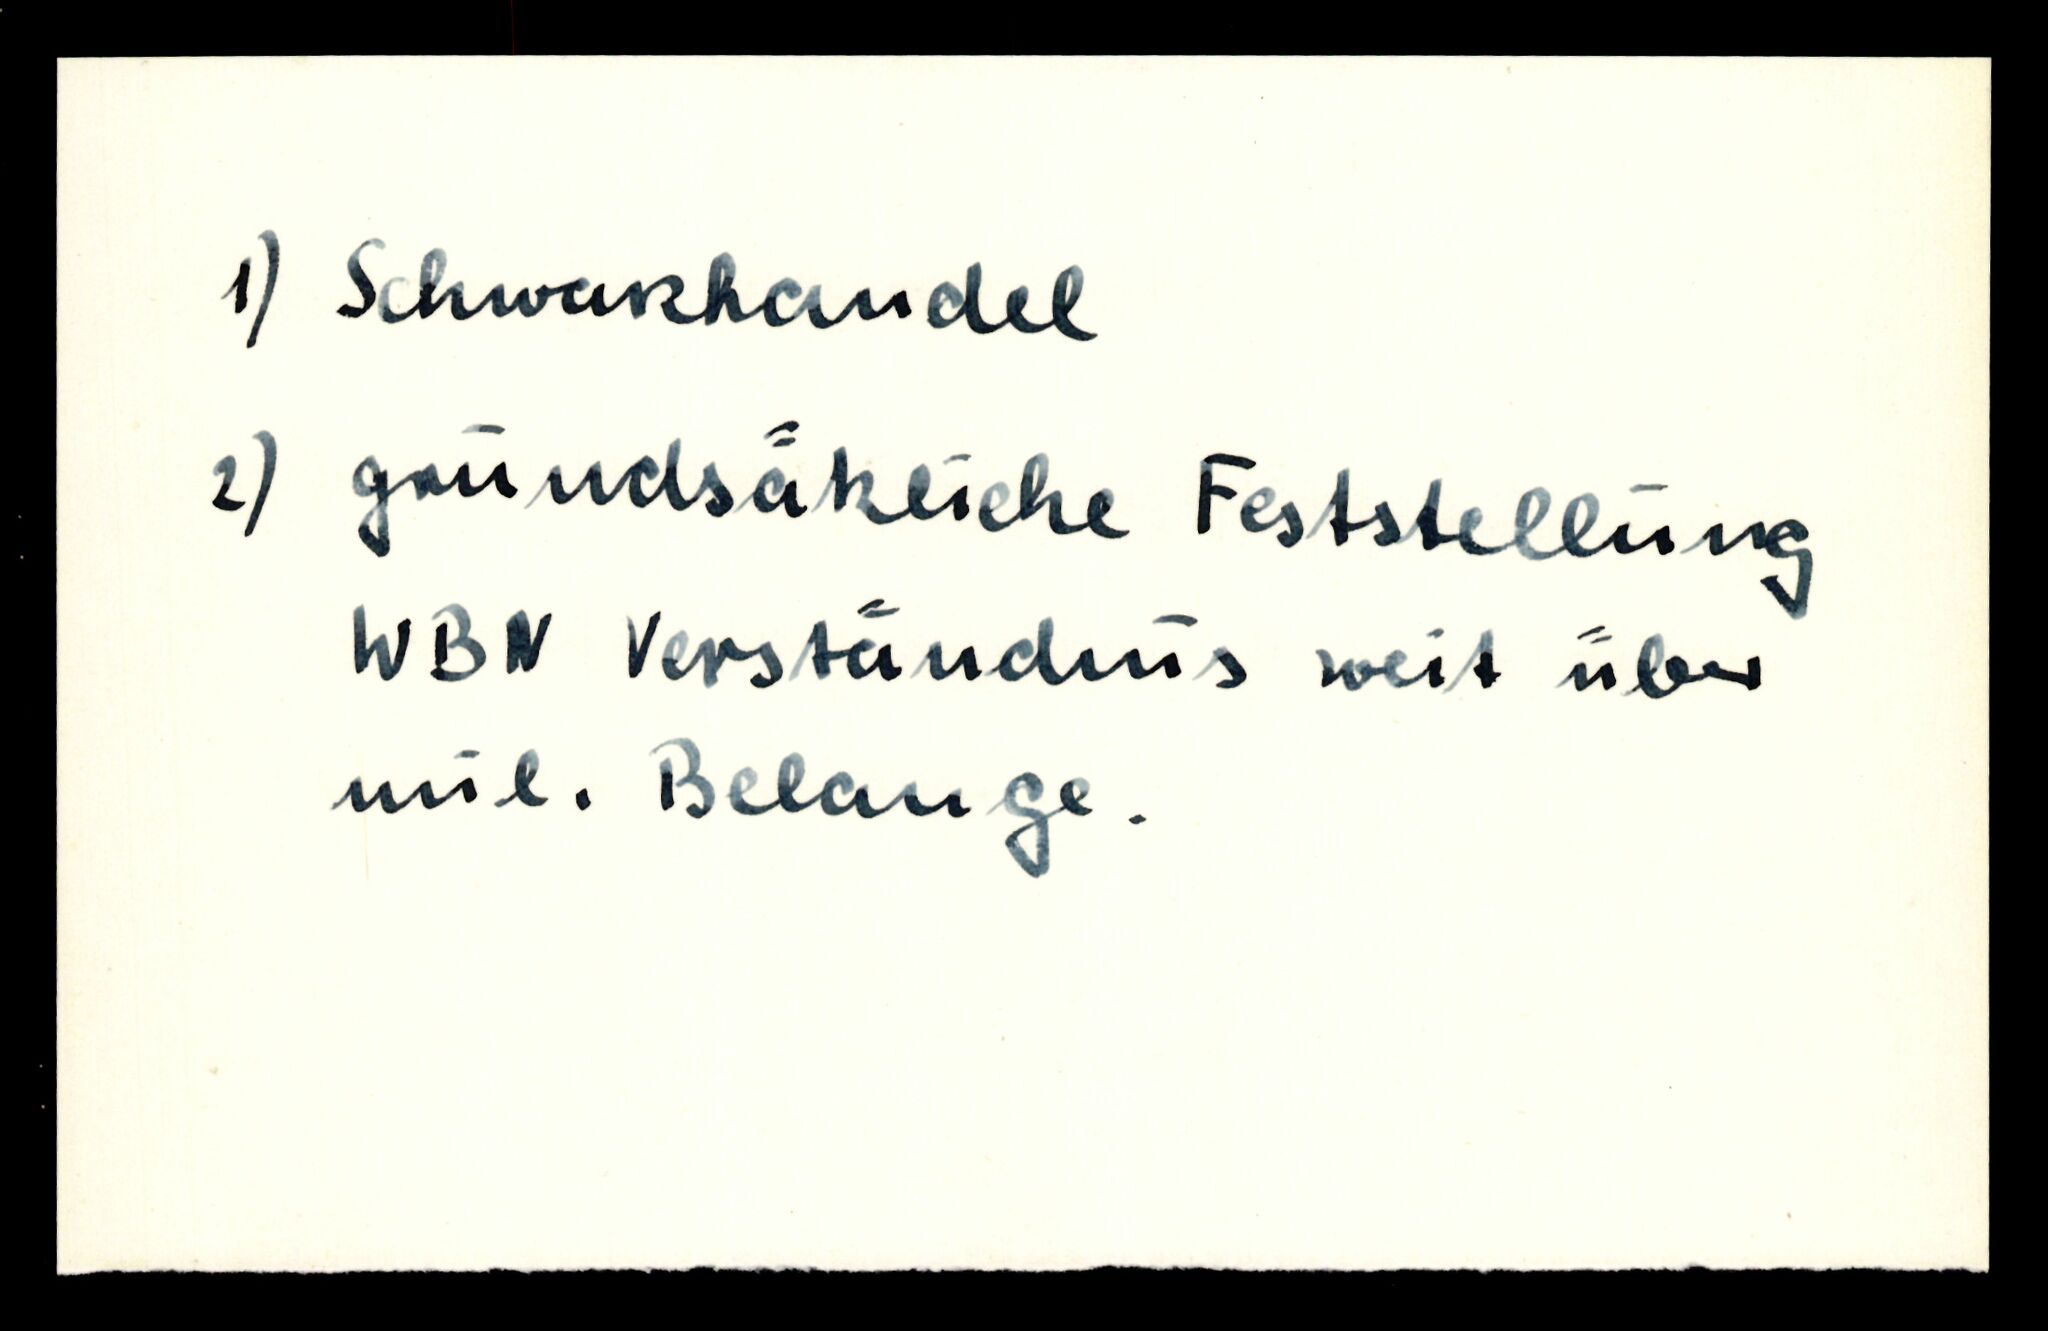 1) Schwarzhandel
2) grundsätzliche Feststellung
WBN Verständnis weit über
mil. Belange.